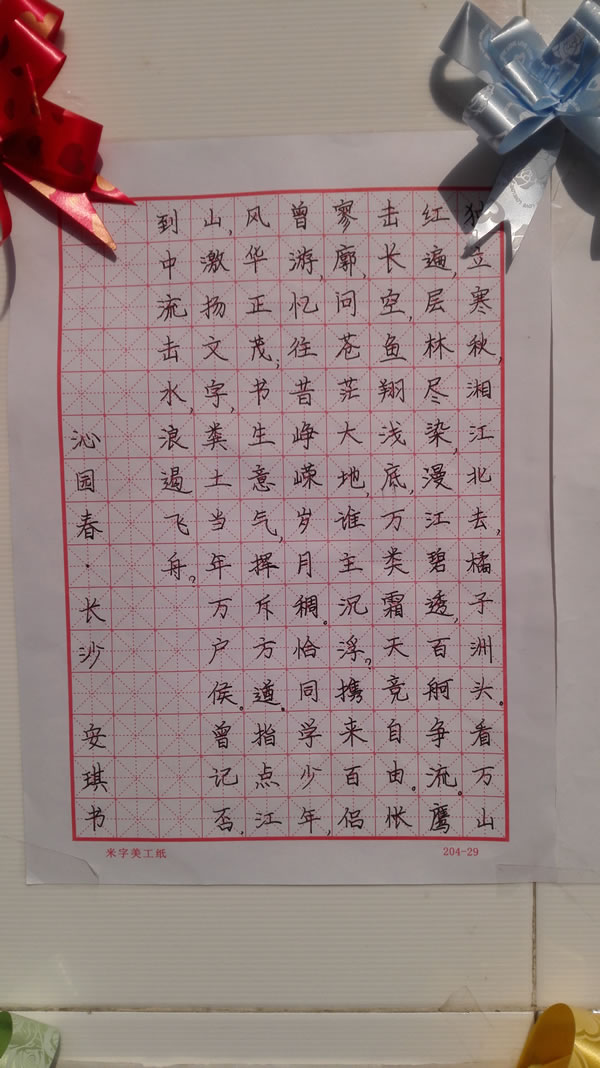 独立寒秋,湘江北去,橘子洲头。看万山
红遍,层林尽染,漫江碧透,百舸争流。鹰
击长空,鱼翔浅底,万类霜天竞自由。怅
寥廓,问苍茫大地,谁主沉浮?携来百侣
曾游,忆往昔峥嵘岁月稠。恰同学少年,
风华正茂;书生意气,挥斥方遒。指点江
山,激扬文字,粪土当年万户侯。曾记否,
到中流击水,浪遏飞舟?
沁园春·长沙 安琪书
米字美工纸
204-29